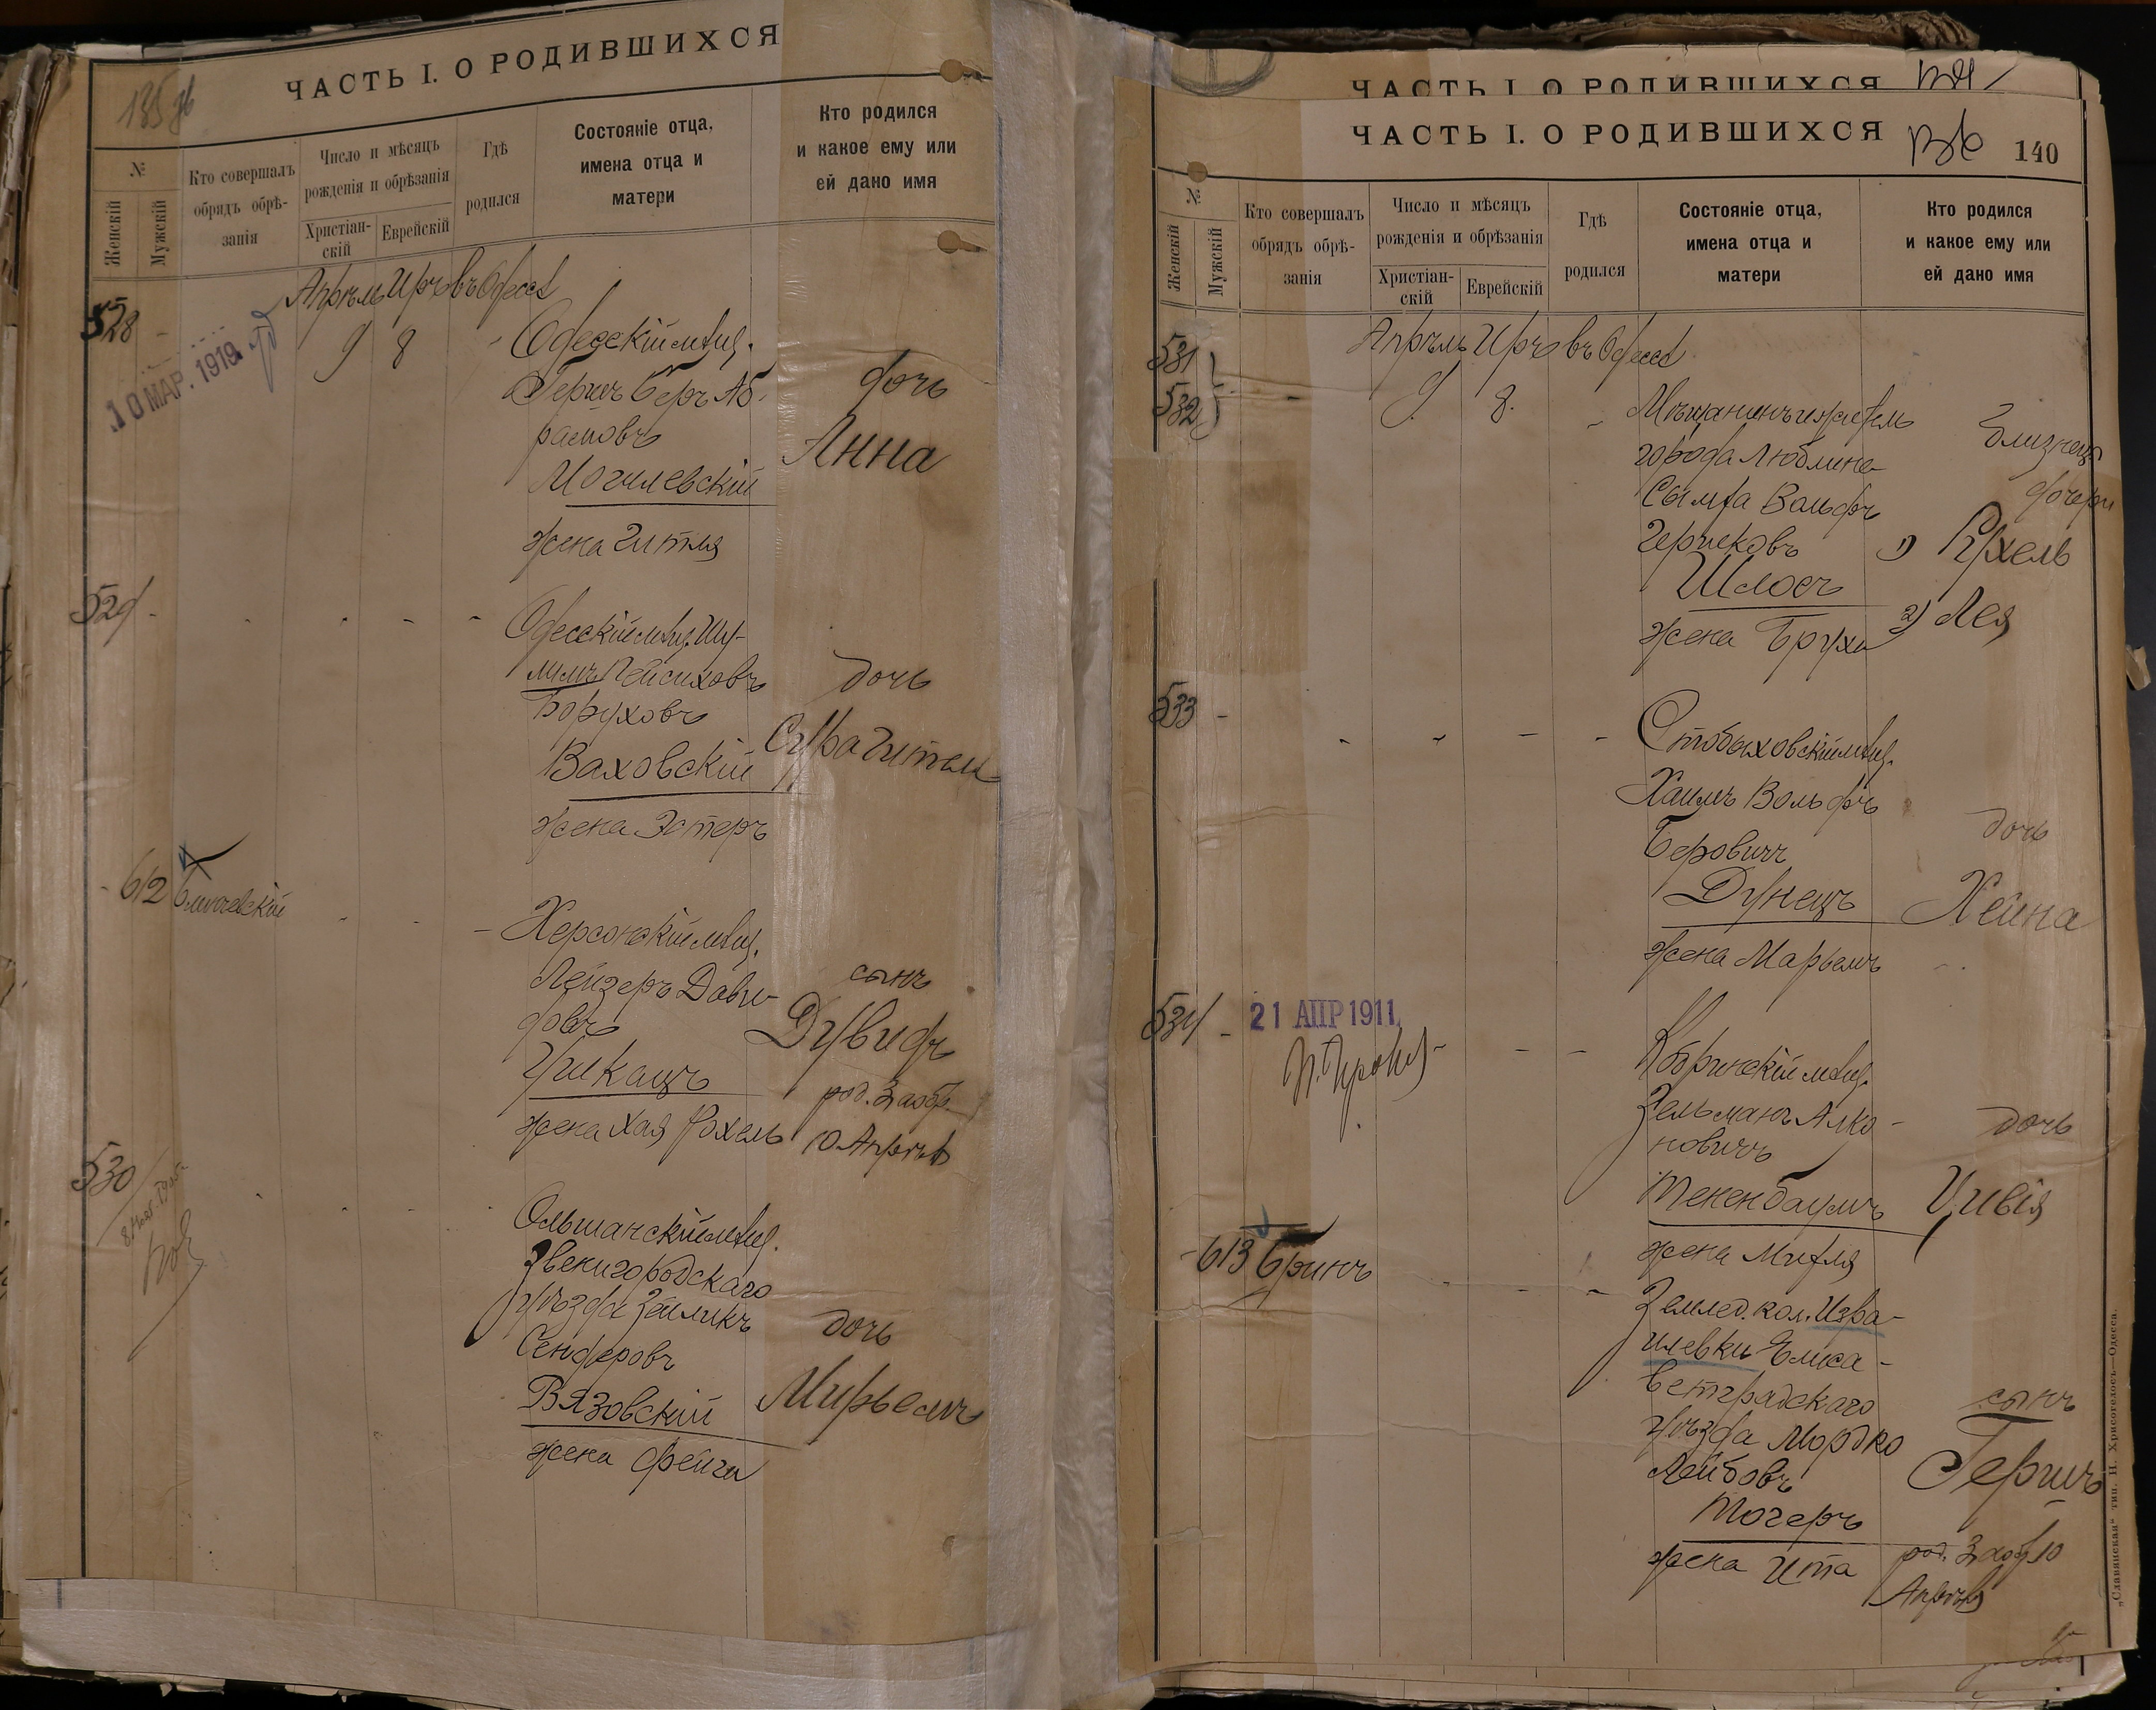 ЧАСТЬ I. О РОДИВШИХСЯ
№
Женскій
Мужскій
Кто совершалъ
обрядъ обрѣ-
занія
Число и мѣсяцъ
рожденія и обрѣзанія
Христіан-
скій
Еврейскій
Гдѣ
родился
Состояніе отца,
имена отца и
матери
Кто родился
и какое ему или
ей дано имя
Апрѣль Иръ въ Одессѣ
528 -
10 МАР. 1919
9 8 -
Одесскій мѣщ.
Гершъ Беръ Аб-
рамовъ
Могилевскій
жена Гитля
дочь
Анна
529 -
Одесскій мѣщ. Шу-
лимъ Пейсиховъ
Боруховъ
Ваховскій
жена Эстеръ
дочь
Сура Гитель
- 612
Херсонскій мѣщ.
Лейзеръ Дави-
довъ
жена Хая Рухель
сынъ
Дувидъ
род. 3 а обр.
10 Апрѣля
530
Ольшанскій мѣщ.
Звенигородскаго
уѣзда Зейликъ
Сендеровъ
Вязовскій
жена Фейга
дочь
Мирьемъ
ЧАСТЬ I. О РОДИВШИХСЯ
ЧАСТЬ I. О РОДИВШИХСЯ
140
№
Женскій
Мужскій
Кто совершалъ
обрядъ обрѣ-
занія
Число и мѣсяцъ
рожденія и обрѣзанія
Христіан-
скій
Еврейскій
Гдѣ
родился
Состояніе отца,
имена отца и
матери
Кто родился
и какое ему или
ей дано имя
Апрѣль Иръ въ Одессѣ
531
532
9 8. -
Мѣщанинъ житель
города Люблина
Вольфъ
Гершковъ
Шлосъ
жена Бруха
близнецы
дочери
1) Рухель
2) Лея
533 -
Стобыховскій мѣщ.
Хаимъ Вольфъ
Беровичъ
Дунецъ
жена Марьемъ
дочь
Хейна
534 -
21 АПР 1911
Кобринскій мѣщ.
Зельманъ Алко-
новичъ
Тененбаумъ
жена Митля
дочь
Цивія
- 613 Бринъ
Землед. кол. Изра-
илевки Елиса-
ветградскаго
уѣзда Мордко
Лейбовъ
Тогеръ
жена Ита
сынъ
Гершъ
род. 3 а обр. 10
Апрѣля
„Славянская“ тип. Н. Хрисогелосъ—Одесса.